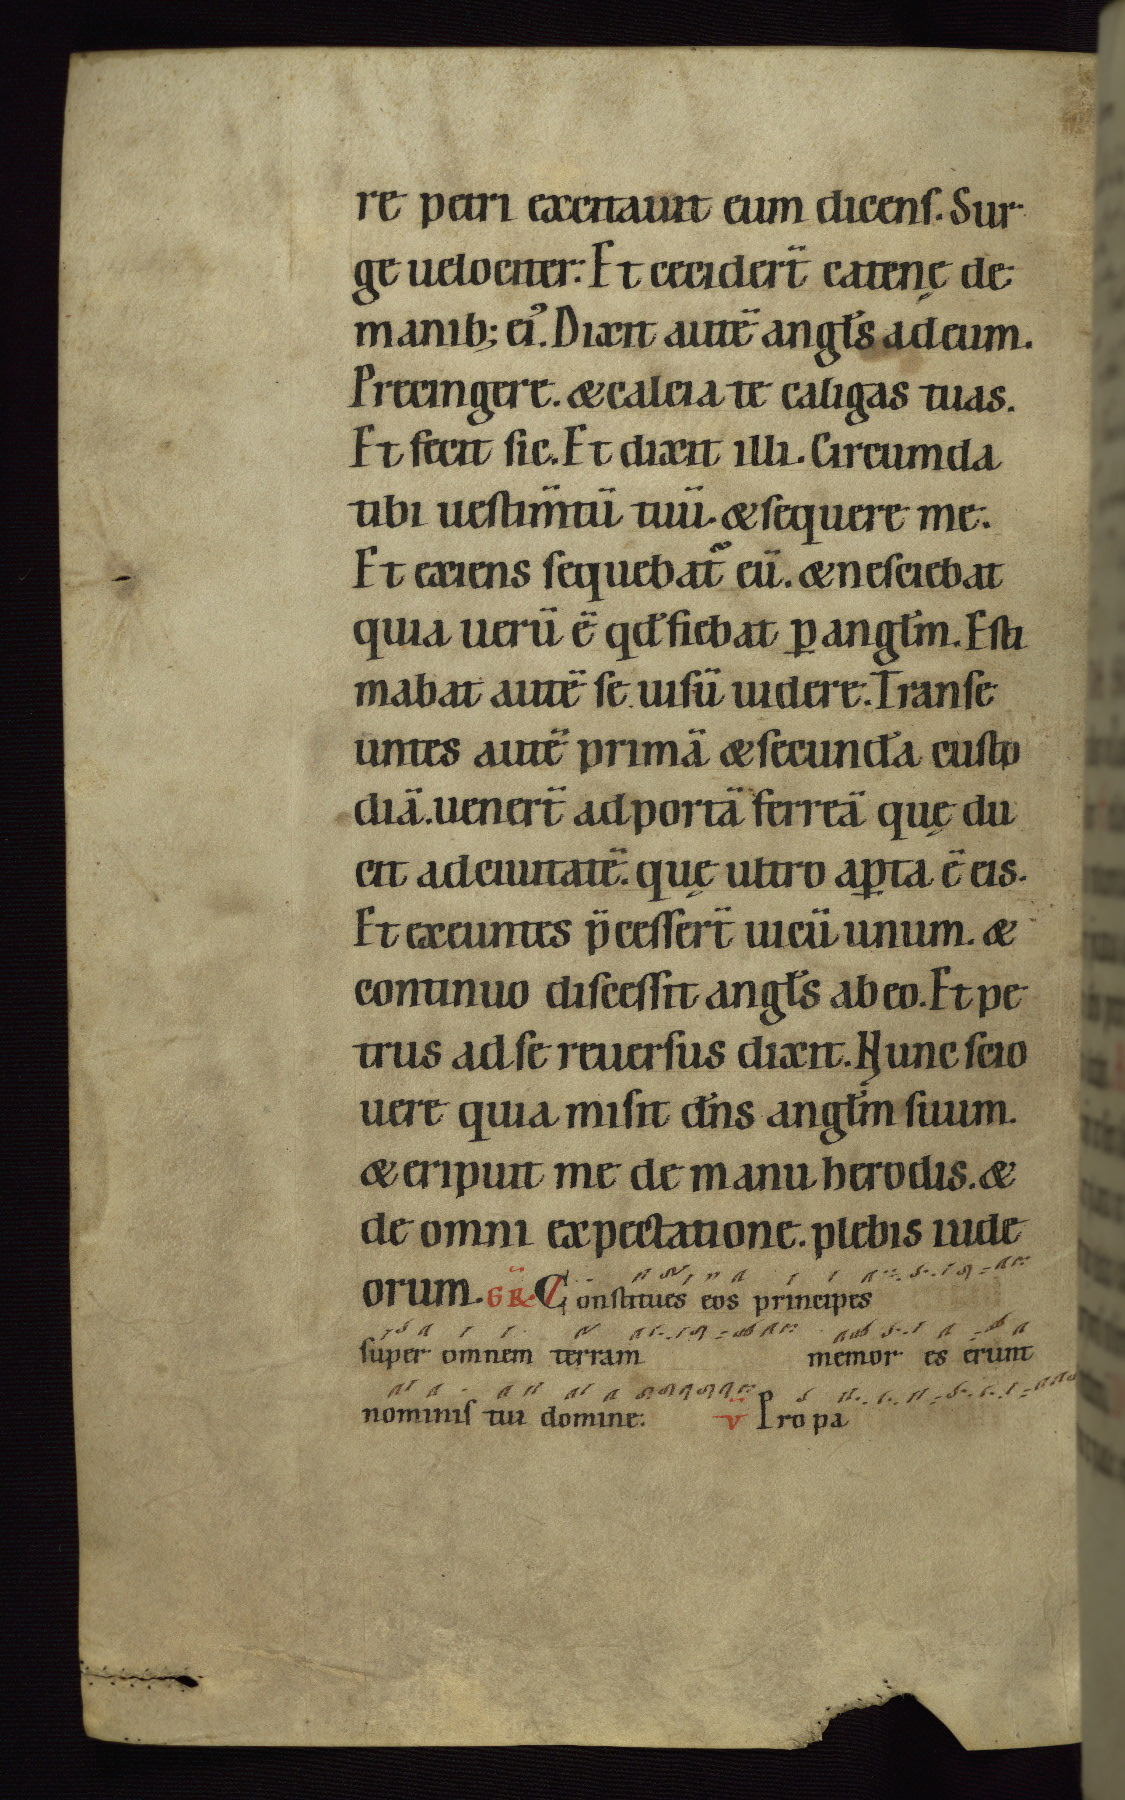 re petri excitauit eum dicens. Sur
ge uelociter. Et cecider̄t catenę de
manib; ei᾽. Dixit autē angl̄s ad eum.
Precingere. & calcia te caligas tuas.
Et fecit sic. Et dixit illi. Circumda
tibi uestim̄tū tuū. & sequere me.
Et exiens sequebat᷑ eū. & nesciebat
quia uerū ē qd̄ fiebat ꝑ angl̄m. Esti
mabat autē se uisū uidere. Transe
untes autē primā & secund̄a custo
diā. uener̄t ad portā ferreā quę du
cit ad ciuitatē. quę ultro aꝑta ē eis.
Et exeuntes p̄cesser̄t uicū unum. &
continuo discessit angl̄s ab eo. Et pe
trus ad se reuersus dixit. Nunc scio
uere quia misit d̄ns angl̄m suum.
& eripuit me de manu herodis. &
de omni expectatione. plebis iude
orum. GR̄. Constitues eos principes
super omnem terram memor es erunt
nominis tui domine. v̄ Pro pa